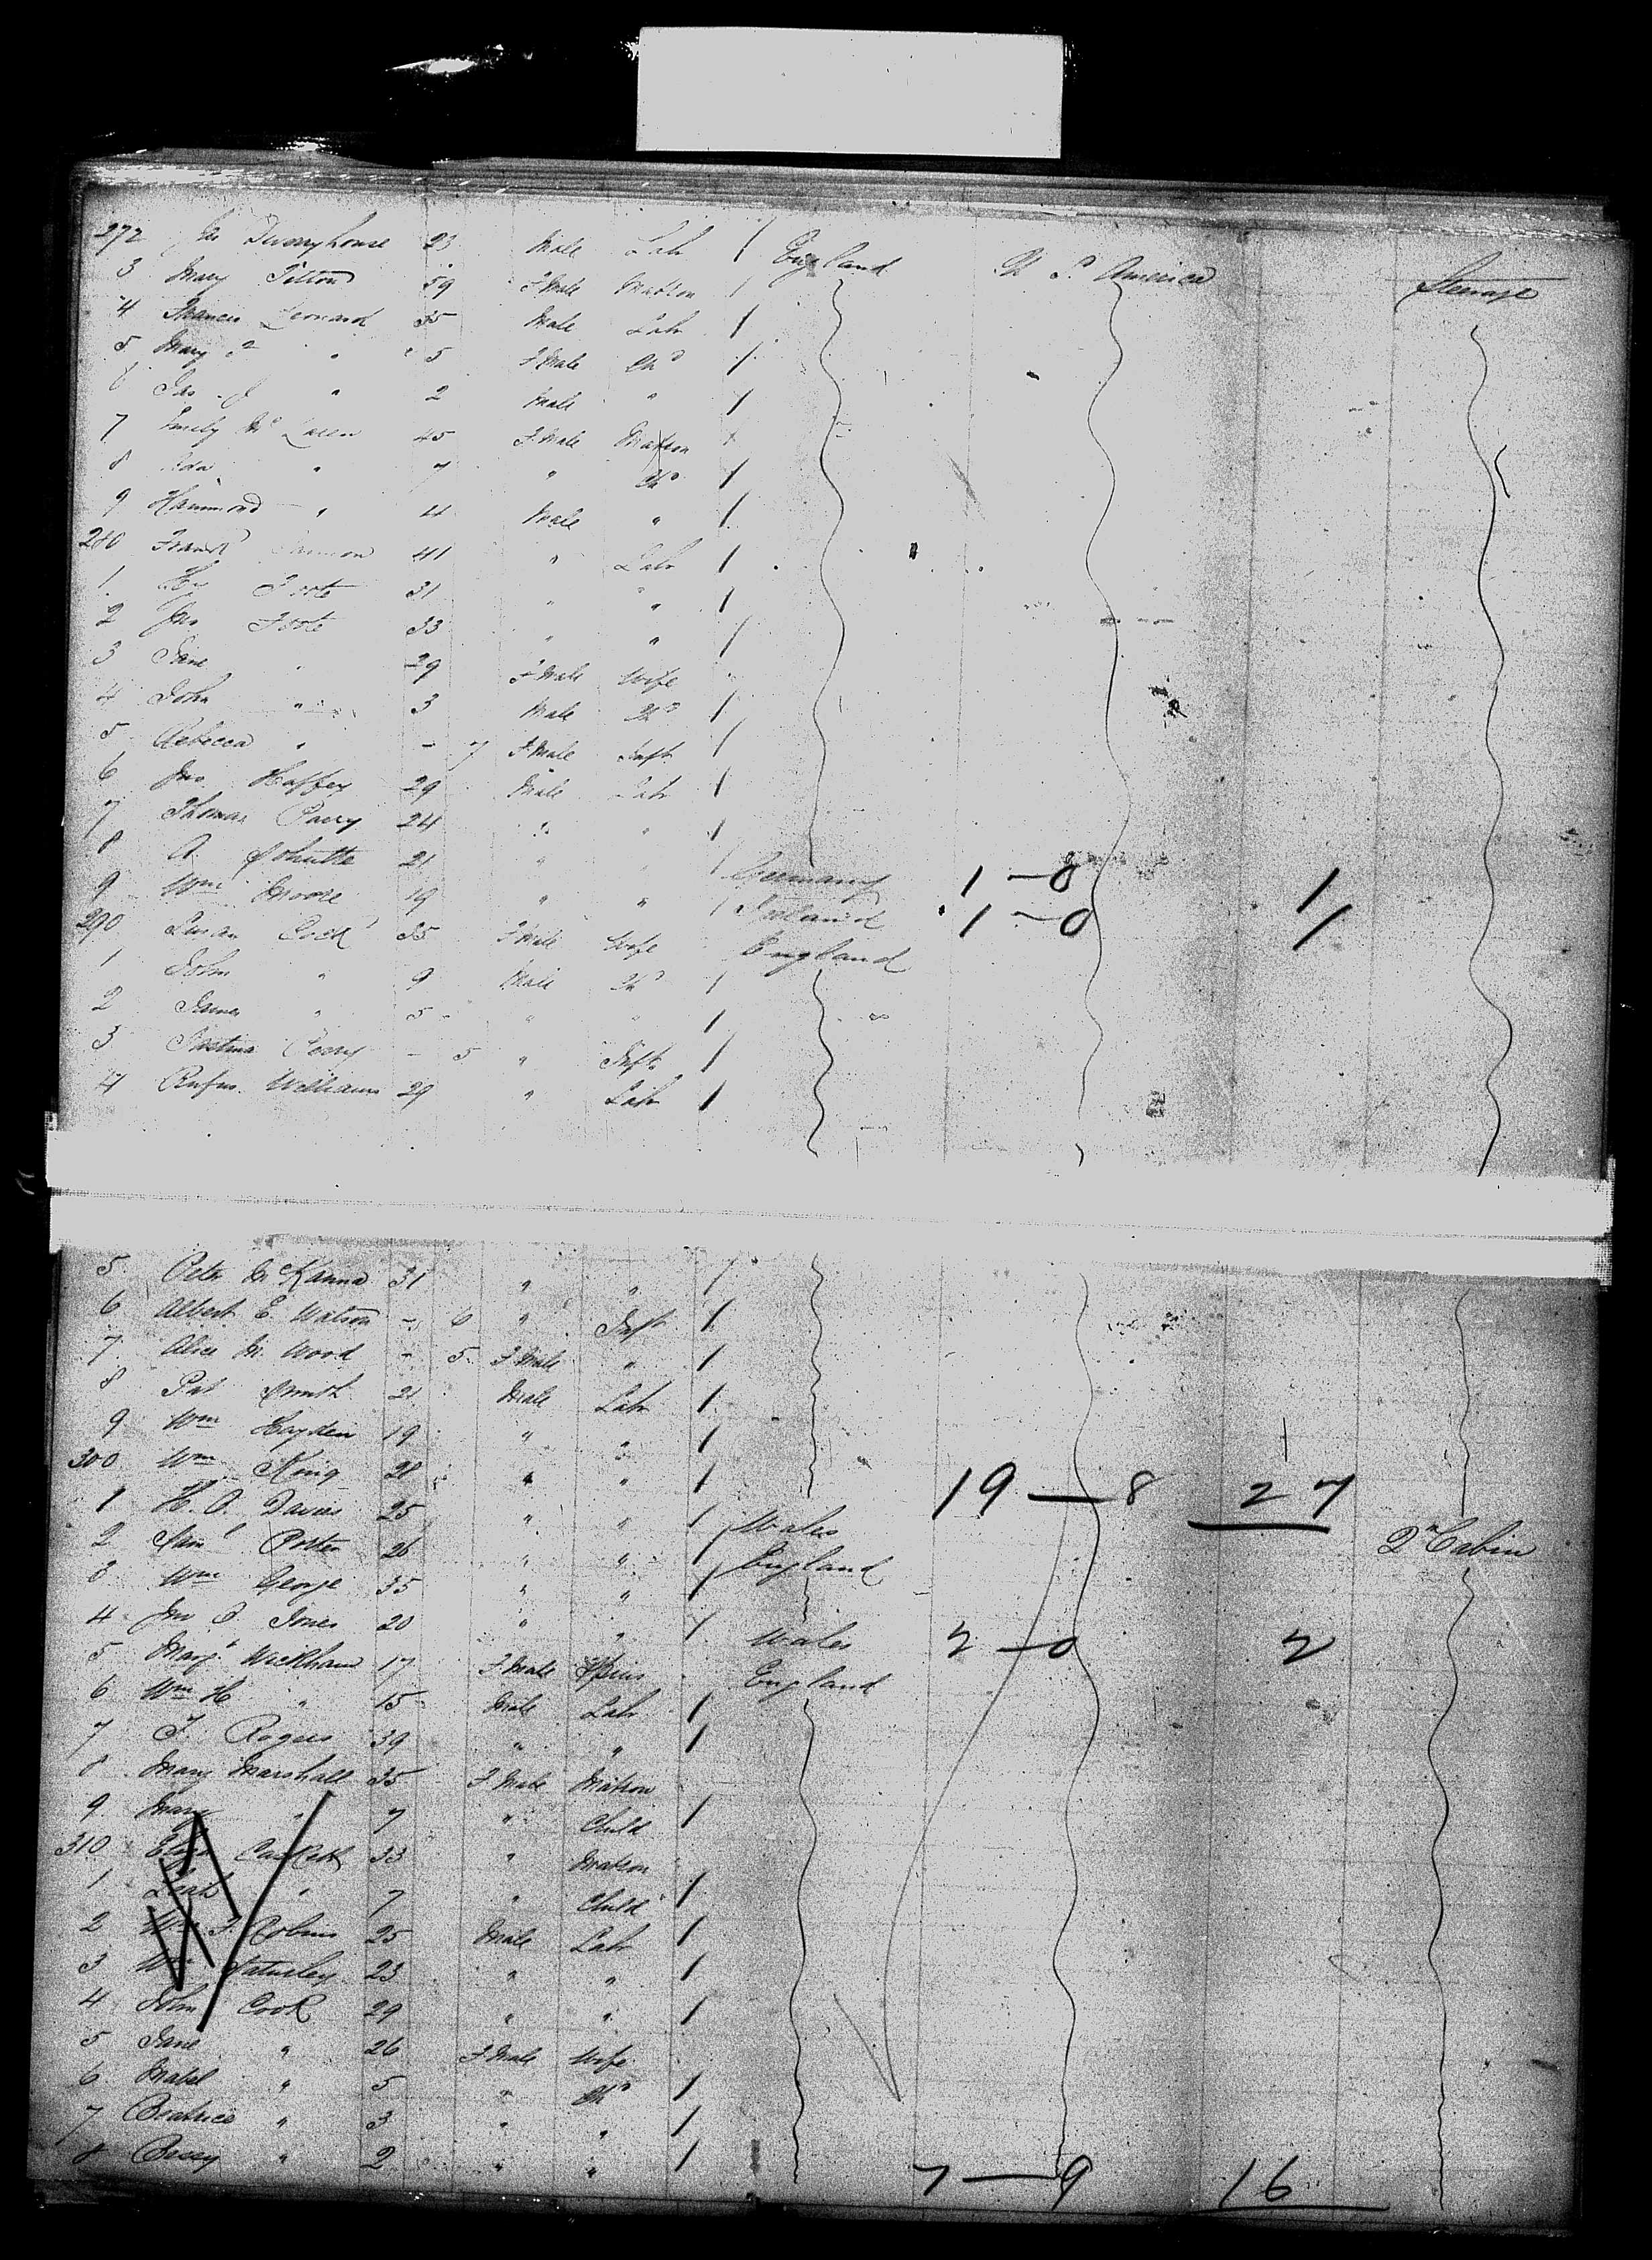 272 Jno Swanyhouse 23 Male Labr / England U S America Steerage
3 Mary Tilton 59 F.Male Matron /
4 Francis Leonard 35 Male Labr /
5 Mary " 5 F.Male Chd /
Jas J " 2 Male " /
7 Emily Mc Laren 45 F.Male Matron
8 Ada " 7 " Chd /
9 Hammond " 4 Male " /
280 Frank 41 " Labr /
1 Hy Foote 31 " " /
2 Jno Foote 33 " " /
3 Jane " 29 F.Male Wife
4 John " 3 Male Chd /
5 Rebecca " - 7 F.Male Inft /
6 Jno Haffey 29 Male Labr /
7 Thomas Parry 24 " " /
8 A Schutte 21 " " / Germany 1 — 0 /
9 Wm Moore 19 " " / Ireland 1 — 0 /
290 Susan Cock 35 F.Male Wife England
1 John " 9 Male Chd /
2 James " 5 " " /
3 Perry - 5 " Inft /
4 Rufus Williams 29 " Labr /
5 Peter McKanna 31 " " /
6 Albert E. Watson - 6 " Inft /
7 Alice M. Wood - 5 F.Male " /
8 Pat Smith 21 Male Labr /
9 Wm Hayden 19 " " /
300 Wm King 28 " " / 19 — 8 27
1 H. O. Davies 25 " " / Wales
2 Saml Porter 26 " " / England 2n Cabin
3 Wm George 35 " " /
4 Jno O. Jones 20 " " / Wales 2 — 0 2
5 Margt Wickham 17 F.Male Spins England
6 Wm H " 15 Male Labr /
7 F. Rogers 39 " " /
8 Mary Marshall 35 F.Male Matron
9 Mary " 7 " Child /
310 Eliza 33 " Matron
1 Leah " 7 " Child /
2 Wm F. Robins 25 Male Labr /
3 Wm 23 " " /
4 John Cook 29 " " /
5 Jane " 26 F.Male Wife
6 Mabel " 5 " Chd /
7 Beatrice " 3 " " /
8 Bessy " 2 " " / 7 — 9 16